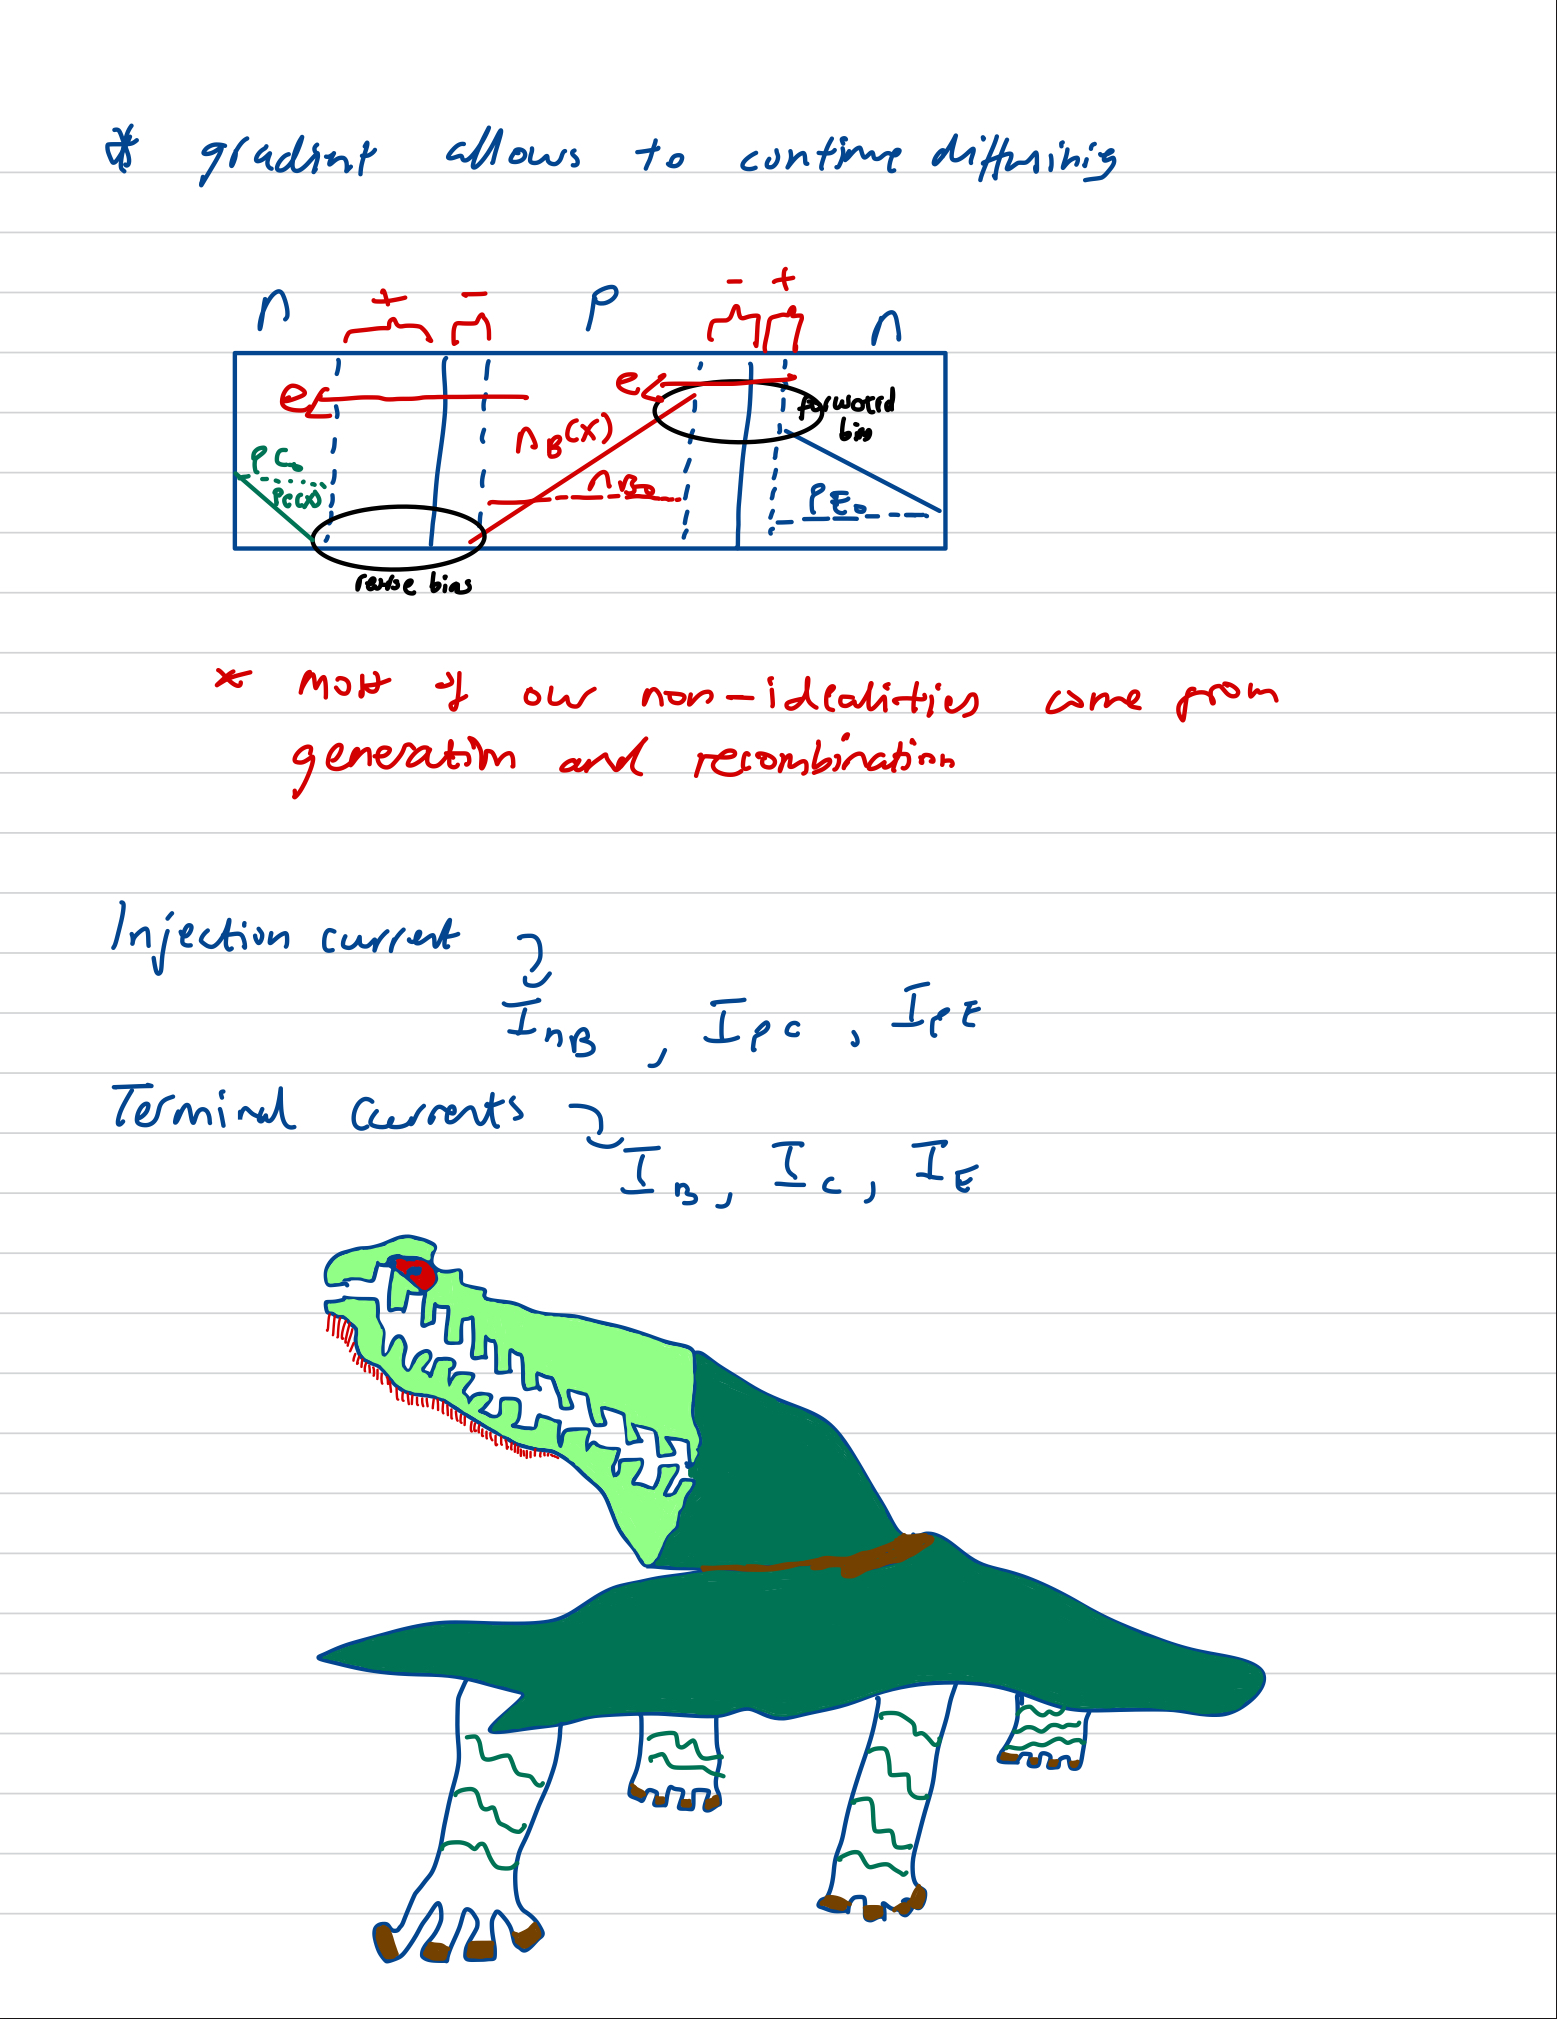 * gradient allows to continue diffusing
n + - p - + n
e e forward
bias
n_B(x)
PC₀ n_B₀
PC(x) PE₀
reverse bias
* most of our non-idealities come from
generation and recombination
Injection current
I_nB , I_pC , I_pE
Terminal currents
I_B , I_C , I_E